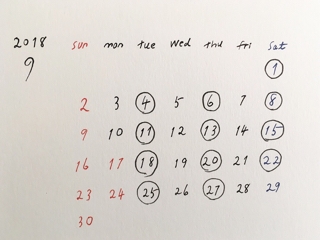 2018 sun mon tue wed thu fri sat
9 1
2 3 4 5 6 7 8
9 10 11 12 13 14 15
16 17 18 19 20 21 22
23 24 25 26 27 28 29
30